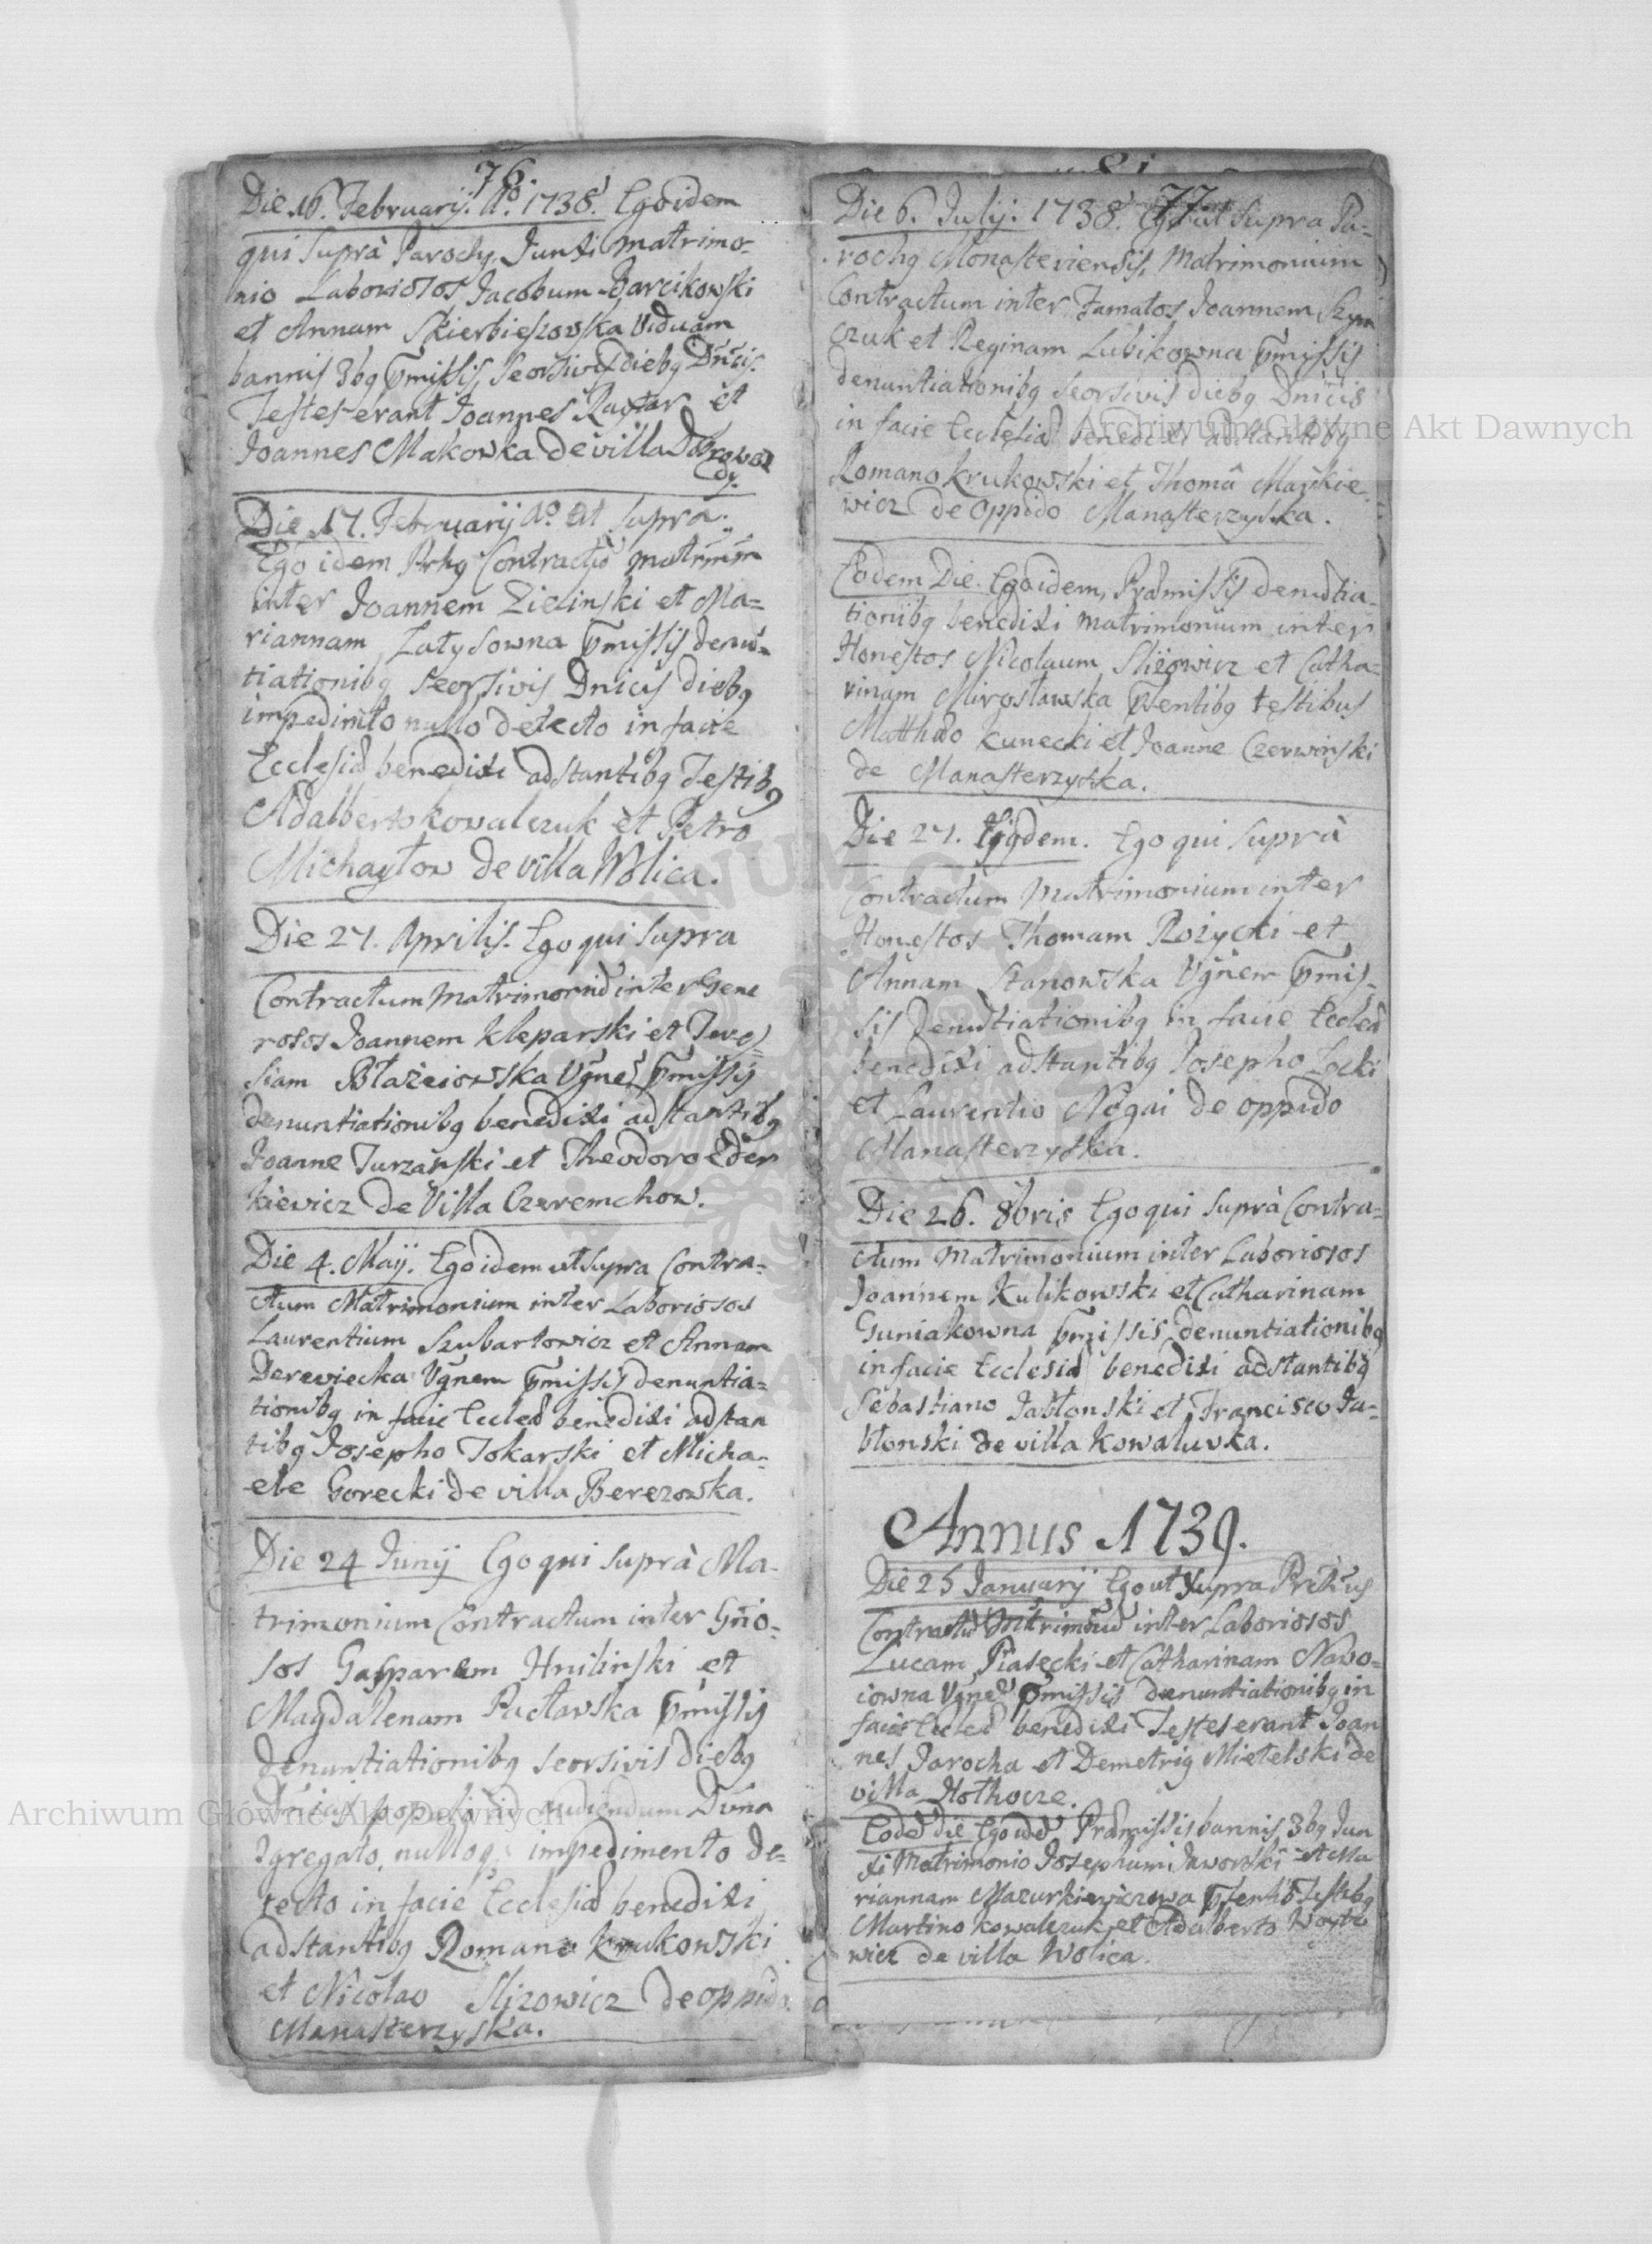 76.
Die 16. Februarij. Aº. 1738. Ego idem
qui suprà Parochq Junxi matrimo-
nio Laboriosos Jacobum Barcikowski
et Annam Skierbieszovska Viduam
bannis 3bq pmissis, seorsivis diebq Dnicis.
Testes erant Joannes Raytar et
Joannes Makowka de villa Dobrowo
dy.
Die 17. Februarij Aº ut supra.
Ego idem Prhq Contractū matrimm
inter Joannem Zielinski et Ma=
riannam Łatysowna pmissis denū=
tiationibq seorsivis Dnicis diebq
impedimto nullo detecto in facie
Ecclesiæ benedixi adstantibq Testibq
Adalberto Kowalczuk et Petro
Michayłow de villa Wolica.
Die 27. Aprilis. Ego qui supra
Contractum Matrimoniū inter Gene
rosos Joannem Kleparski et Tere=
siam Błażeiowska Vgnes pmissis
denuntiationibq benedixi adstantibq
Joanne Turzański et Theodoro Eder
kiewicz de Villa Czeremchow.
Die 4. Maij. Ego idem ut supra Contra-
ctum Matrimonium inter Laboriosos
Laurentium Szubartowicz et Annam
Dereviecka Vgnem pmissis denuntia=
tionibq in facie Eccleæ benedixi adstan
tibq Josepho Tokarski et Micha-
ele Gorecki de villa Berezowka.
Die 24 Junij Ego qui suprà Ma-
trimonium Contractum inter Gño=
sos Gasparem Hnilinski et
Magdalenam Pacławska pmissis
denuntiationibq seorsivis diebq
populo ad audiendum Divina
gregato, nulloq impedimento de=
tecto in facie Ecclesiæ benedixi
adstantibq Romano Krukowski
et Nicolao Slizowicz de oppido
Manasterzyska.
81
77
Die 6. Julij. 1738. Ego ut supra Pa-
rochq Monasteriensis, Matrimonium
Contractum inter Famatos Joannem Szym
czuk et Reginam Lubikowna pmissis
denuntiationibq seorsivis diebq Dnicis
in facie Ecclesiæ benedixi adstantibq
Romano Krukowski et Thomâ Maykie-
wicz de Oppido Manasterzyska.
Eodem Die. Ego idem, Præmissis denutia-
tionibq benedixi matrimonium inter
Honestos Nicolaum Slizowicz et Catha-
rinam Mirosławska psentibq testibus
Matthæo Kunecki et Joanne Czerwinski
de Manasterzyska.
Die 27. Ejqdem. Ego qui suprà
Contractum Matrimonium inter
Honestos Thomam Rożycki et
Annam Stanowska Vgnem pmis-
sis denutiationibq in facie Eccleæ
benedixi adstantibq Josepho Łocki
et Laurentio Nogai de oppido
Manasterzyska.
Die 26. 8bris Ego qui suprà Contra=
ctum Matrimonium inter Laboriosos
Joannem Kulikowski et Catharinam
Guniakowna pmissis denuntiationibq
in facie Ecclesiæ benedixi adstantibq
Sebastiano Jabłonski et Francisco Ja-
błonski de villa Kowaluvka.
Annus 1739.
Die 25 Januarij Ego ut supra Prchus
Contractū Mtrimoniū inter Laboriosos
Lucam Piasecki et Catharinam Nawo=
iowna Vgnes pmissis denuntiationibq in
facie Eccleæ benedixi Testes erant Joan
nes Jarocha et Demetriq Mietelski de
villa Hothocze.
Eodē die Ego idē Præmissis bannis 3bq Jun
xi Matrimonio Josephum Jaworski et Ma
riannam Mazurkiewiczowa psentib Testibq
Martino Kowalczuk et Adalberto Woyto
wicz de villa Wolica.
Archiwum Główne Akt Dawnych
Archiwum Główne Akt Dawnych